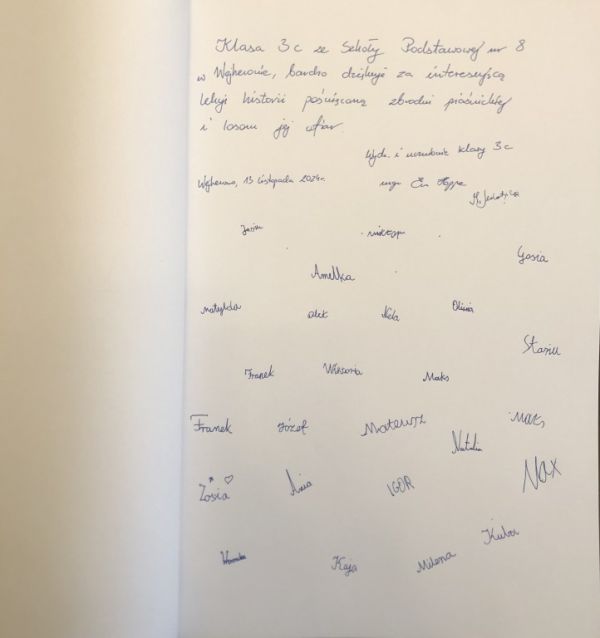 Klasa 3c ze Szkoły Podstawowej nr 8
w Wejherowie, bardzo dziękuje za interesującą
lekcję historii poświęconą zbrodni piaśnickiej
i losom jej ofiar.
Wych. i uczniowie klasy 3c
Wejherowo, 13 listopada 2024r. mgr Ewa
Gosia
Amelka
Matylda Olek Nela Oliwia
Stasiu
Franek Wiktoria Maks
Franek Józef Mateusz Maks
Natalia
Zosia Ania IGOR Max
Kuba
Kaja Milena